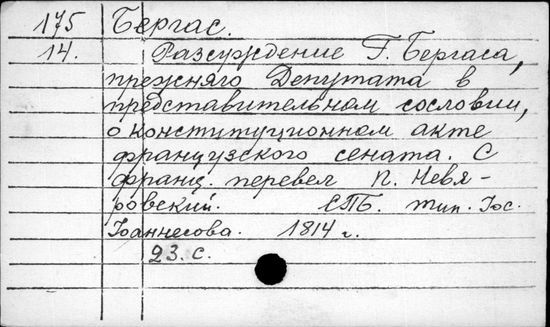 175 Бергас.
14. Разсуждение Г. Бергаса,
прежняго Депутата в
представительном сословии,
о конституционном акте
французского сената. С
франц. перевел П. Невя-
ровский. СПБ. тип. Iос.
Iоаннесова. 1814 г.
23. с.